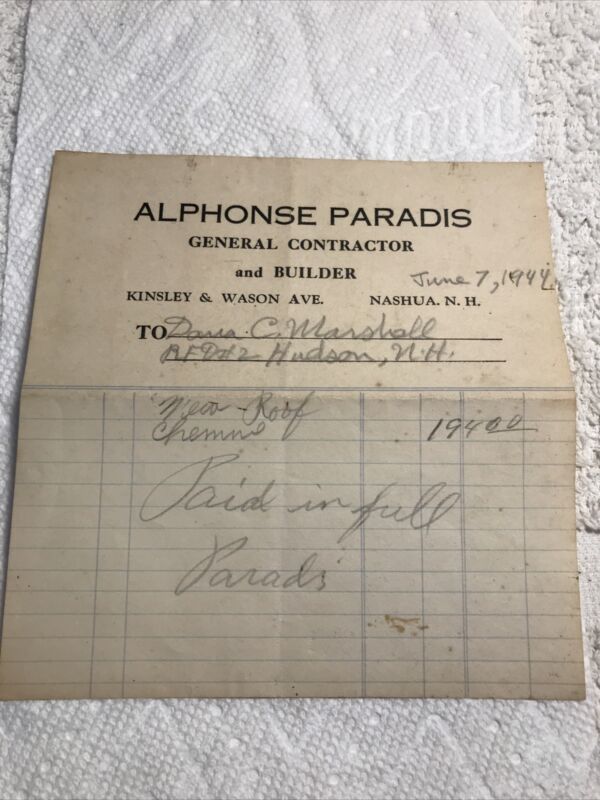 ALPHONSE PARADIS
GENERAL CONTRACTOR
and BUILDER
June 7, 1944
KINSLEY & WASON AVE. NASHUA. N. H.
TO Dana C. Marshall
RFD#2 Hudson, N.H.
New Roof
Chemnie 194 00
Paid in full
Paradis